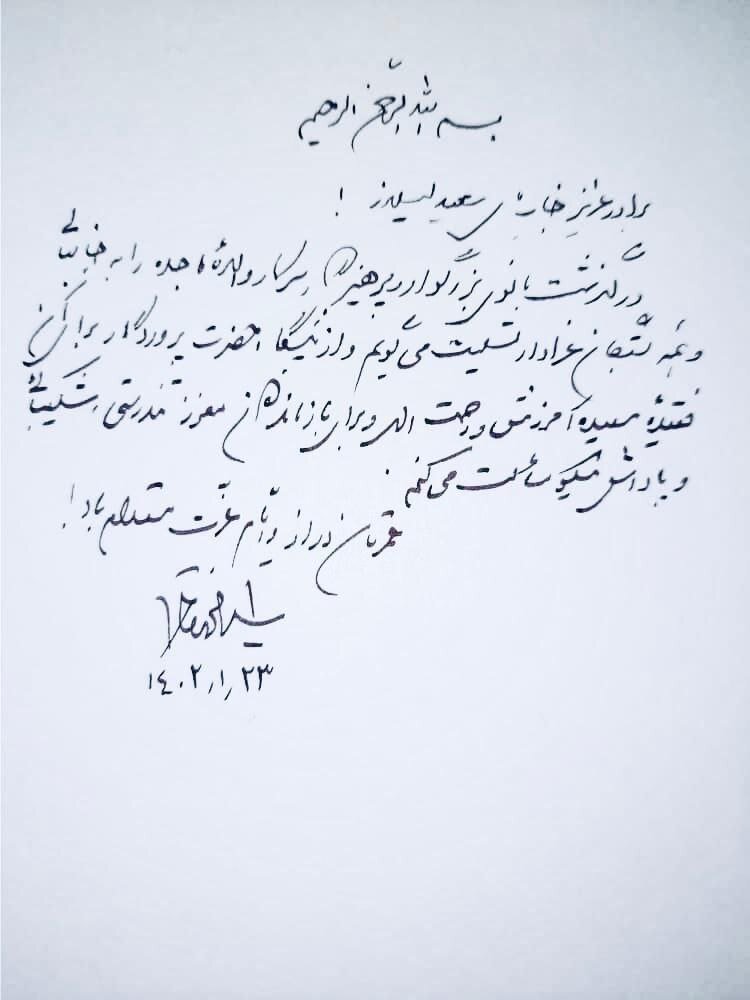 بسم الله الرحمن الرحیم
برادر عزیز جناب آقای سعید لیلاز !
درگذشت بانوی بزرگوار و پرهیزگار سرکار والدهٔ ماجده را به جنابعالی
و همه بستگان عزادار تسلیت می‌گویم و از پیشگاه حضرت پروردگار برای آن
فقیدهٔ سعیده آمرزش و رحمت الهی و برای بازماندگان معزز تندرستی، شکیبائی
و پاداش نیکو مسألت می‌کنم.
عمرتان دراز و ایام عزّت مستدام باد!
سید محمد خاتمی
۱۴۰۲٫۱٫۲۳